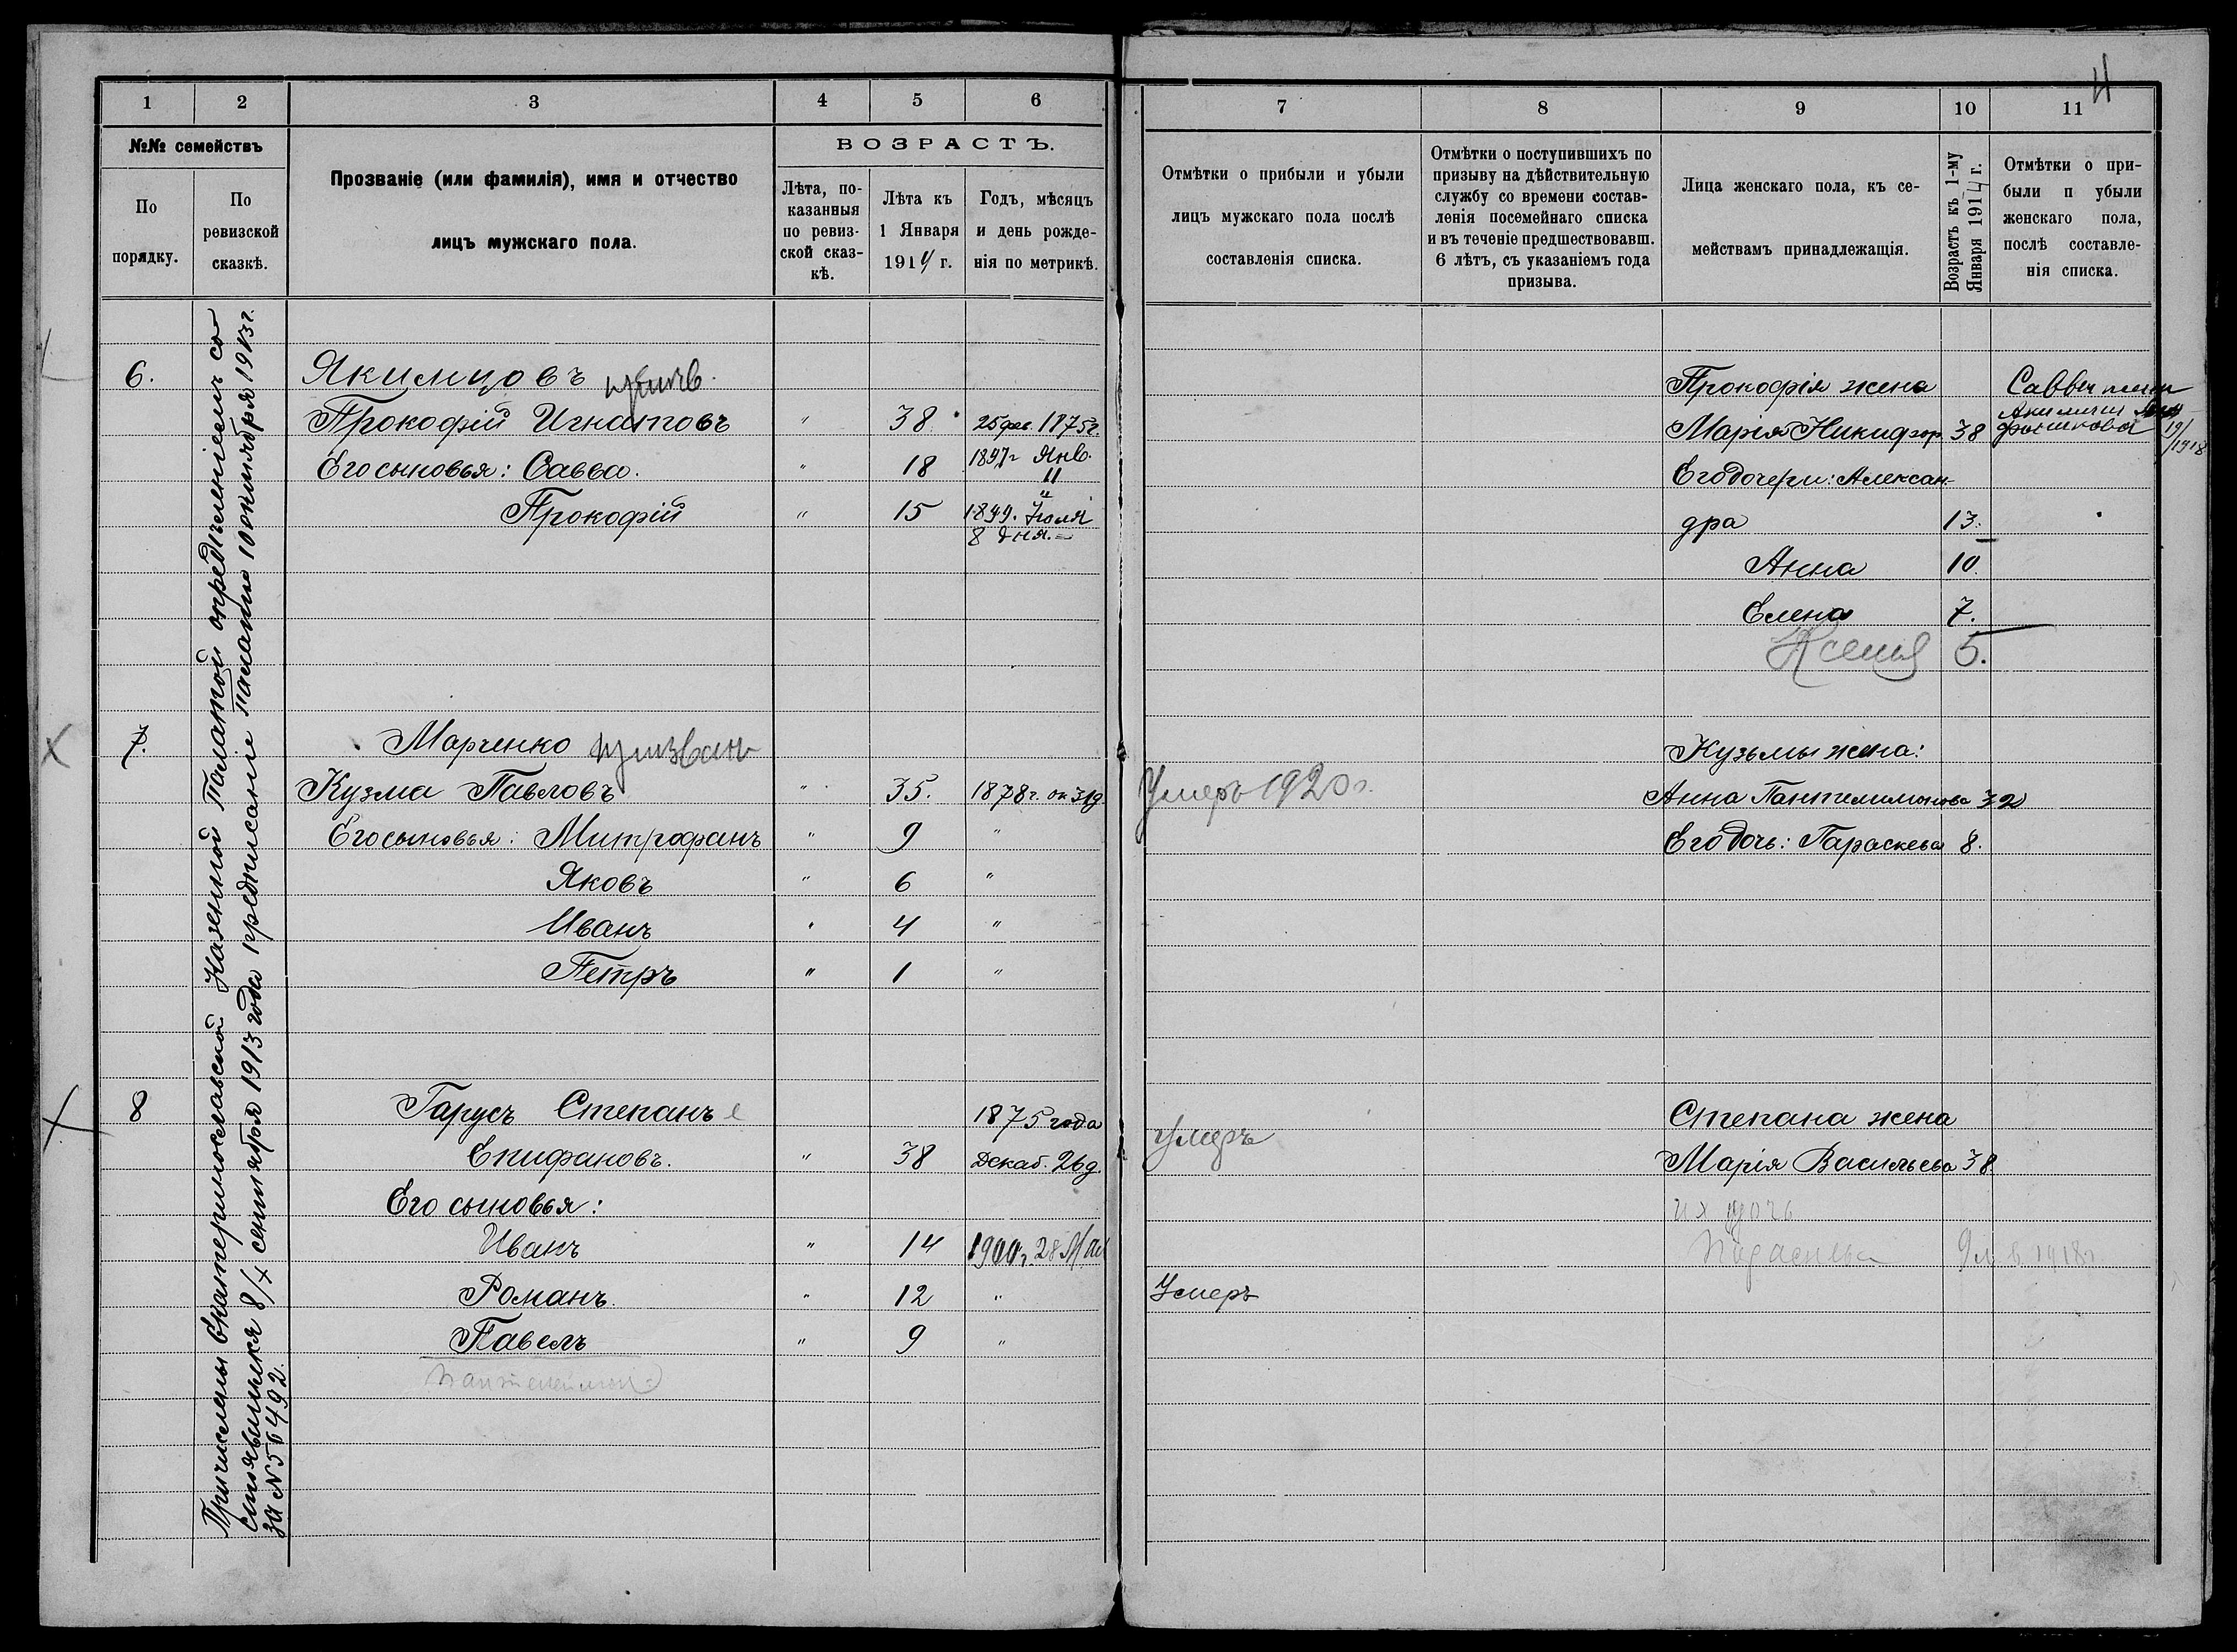 1 2 3 4 5 6
№№ семействъ
По порядку.
По ревизской сказкѣ.
Прозваніе (или фамилія), имя и отчество
лицъ мужскаго пола.
ВОЗРАСТЪ.
Лѣта, по-
казанныя
по ревиз-
ской сказ-
кѣ.
Лѣта къ
1 Января
1914 г.
Годъ, мѣсяцъ
и день рожде-
нія по метрикѣ.
Причислены Екатеринославской Казенной Палатой опредѣленіемъ со
стоявшимся 8/х сентября 1913 года предписаніе Палаты 10 октября 1913 г.
за №56492.
6. Якимцовъ
Прокофій Игнатовъ " 38 25 фев. 1875 г.
Его сыновья: Савва. " 18 1897 г Янв.
11
Прокофій " 15 1899. Іюля
8 дня.
7. Марченко призванъ
Кузма Павловъ " 35. 1878 г. ок 31 д
Его сыновья: Митрофанъ " 9 "
Яковъ " 6 "
Иванъ " 4 "
Петръ " 1 "
8 Гарусъ Степанъ 1875 года
Епифановъ. " 38 Декаб. 26 д.
Его сыновья:
Иванъ " 14 1900 г. 28 Мая
Романъ. " 12 "
Павелъ " 9 "
Пантелеймон
7 8 9 10 11
Отмѣтки о прибыли и убыли
лицъ мужскаго пола послѣ
составленія списка.
Отмѣтки о поступившихъ по
призыву на дѣйствительную
службу со времени состав-
ленія посемейнаго списка
и въ теченіе предшествовавш.
6 лѣтъ, съ указаніемъ года
призыва.
Лица женскаго пола, къ се-
мействамъ принадлежащія.
Возрастъ къ 1-му
Января 1914 г.
Отмѣтки о при-
были п убыли
женскаго пола,
послѣ составле-
нія списка.
Прокофія жена Саввы
Марія Никифор. 38
19/
1918
Его дочери: Алексан-
дра 13.
Анна 10.
Елена 7.
Ксенія 5.
Кузьмы жена:
Умеръ 1920 г. Анна Пантелимонова 32
Его дочь: Параскева 8.
Степана жена
умеръ Марія Васильева 38.
их дочь
Параскева 9 л. в 1918 г.
Умеръ